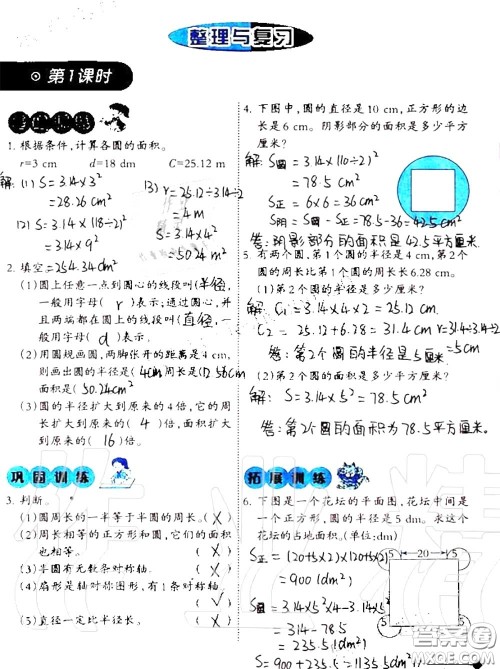 整理与复习
第1课时
1. 根据条件，计算各圆的面积。
r=3 cm d=18 dm C=25.12 m
解: (1) S=3.14×3²
=28.26 cm²
(2) S=3.14×(18÷2)²
=3.14×9²
=254.34 dm²
(3) r=25.12÷3.14÷2
=4m
S=3.14×4²
=50.24 m²
2. 填空。
(1)圆上任意一点到圆心的线段叫(半径),
一般用字母( r )表示;通过圆心,并
且两端都在圆上的线段叫(直径),
一般用字母( d )表示。
(2)用圆规画圆,两脚张开的距离是4 cm,
则画出圆的半径是(4cm),周长是(25.12cm)
面积是(50.24cm²)
(3)圆的半径扩大到原来的4倍,它的周
长扩大到原来的( 4 )倍,面积扩大
到原来的( 16 )倍。
巩固训练
3. 判断。
(1)圆周长的一半等于半圆的周长。(×)
(2)周长相等的正方形和圆,它们的面积
也相等。(×)
(3)半圆有无数条对称轴。(×)
(4)扇形是轴对称图形,有1条对称轴。
(√)
(5)直径一定比半径长。(×)
4. 下图中,圆的直径是10 cm,正方形的边
长是6 cm。阴影部分的面积是多少平方
厘米?
解: S圆=3.14×(10÷2)²
=78.5 cm²
S正=6×6=36 cm²
S阴=S圆-S正=78.5-36=42.5cm²
答:阴影部分的面积是42.5平方厘米。
5. 有两个圆,第1个圆的半径是4 cm,第2个
圆的周长比第1个圆的周长多6.28 cm。
(1)第2个圆的半径是多少厘米?
解: C₁=3.14×4×2=25.12
C₂=25.12+6.28=31.4cm r=31.4÷3.14÷2
=5cm
答:第2个圆的半径是5cm
(2)第2个圆的面积是多少平方厘米?
解: S=3.14×5²=78.5 cm²
答:第2个圆的面积为78.5平方厘米。
拓展训练
6. 下图是一个花坛的平面图,花坛中间是
一个正方形,圆的半径是5 dm。求这个
花坛的占地面积。(单位:dm)
S正=(20+5×2)×(20+5×2)
=900(dm²)
S圆=3.14×5²×4-3.14×5²
=314-78.5
=235.5(dm²)
S=900+235.5=1135.5(dm²)
5 20 5
5 5
答案圈
MXQE.COM